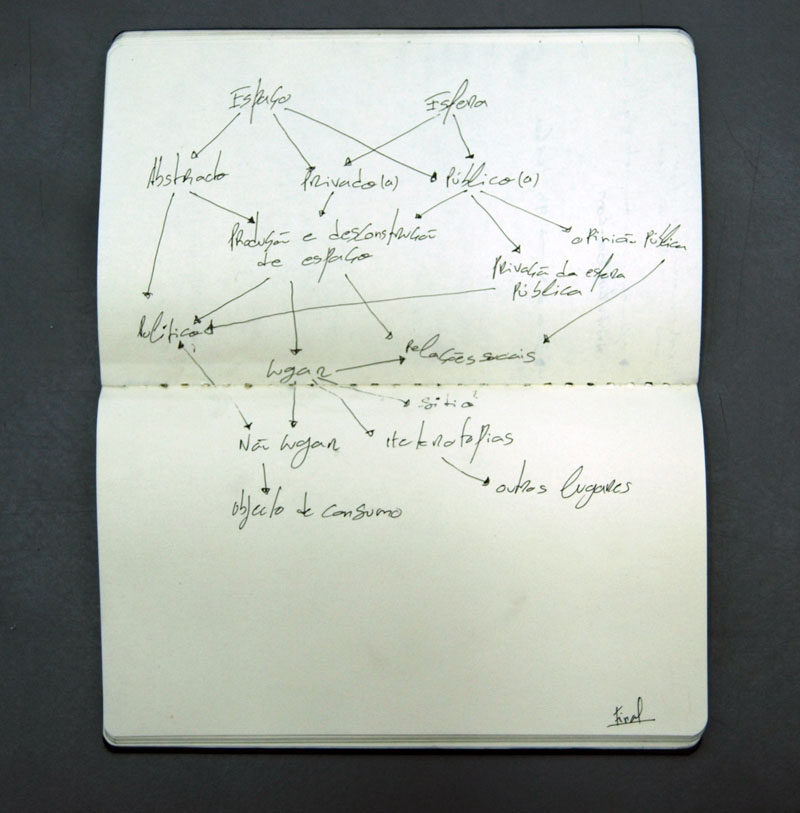 Espaço
Esfera
Abstrado
Privado(a)
Público(a)
Produção e desconstrução
de espaço
opinião Pública
Privação da esfera
Pública
Política
Relações sociais
Lugar
sitio
Não Lugar
Heterotopias
outros lugares
objecto de consumo
Final